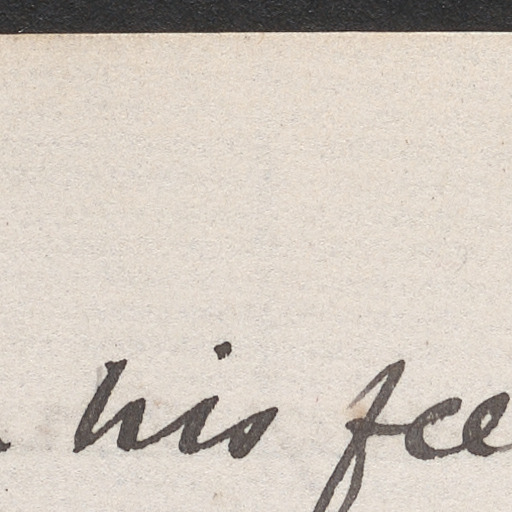 his fee